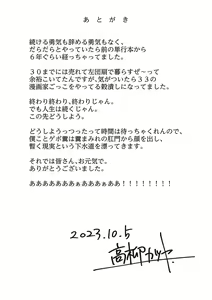 あとがき
続ける勇気も辞める勇気もなく、
だらだらとやっていたら前の単行本から
６年ぐらい経っちゃっていました。
３０までには売れて左団扇で暮らすぜ〜って
余裕こいてたんですが、気が付いたら３３の
漫画家ごっこをやってる穀潰しになってました。
終わり終わり、終わりじゃん。
でも人生は続くじゃん。
この先どうしよう。
どうしようっつったって時間は待っちゃくれんので、
僕ことゲボ糞は糞まみれの肛門から顔を出し、
暫く現実という下水道を漂ってきます。
それでは皆さん、お元気で。
ありがとうございました。
ああああああぁぁあああぁああ！！！！！！！！
2023.10.5
高柳カツヤ